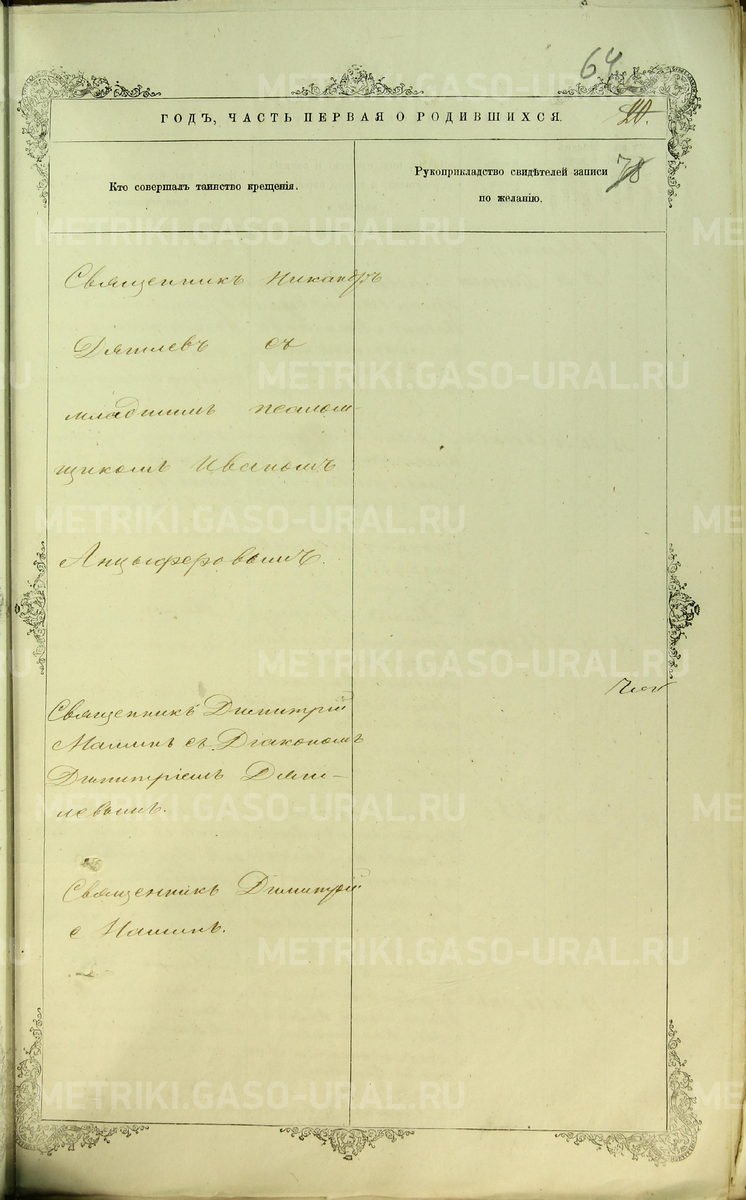 64
ГОДЪ, ЧАСТЬ ПЕРВАЯ О РОДИВШИХСЯ.
20.
Кто совершалъ таинство крещенія.
Рукоприкладство свидѣтелей записи
по желанію.
78
Священникъ Никандръ
Дягилевъ съ
младшимъ псалом-
щикомъ Иваномъ
Анцыферовымъ.
Священникъ Димитрій
Маминъ съ Діакономъ
Димитріемъ Дяги-
левымъ.
Священникъ Димитрій
Маминъ.
METRIKI.GASO-URAL.RU